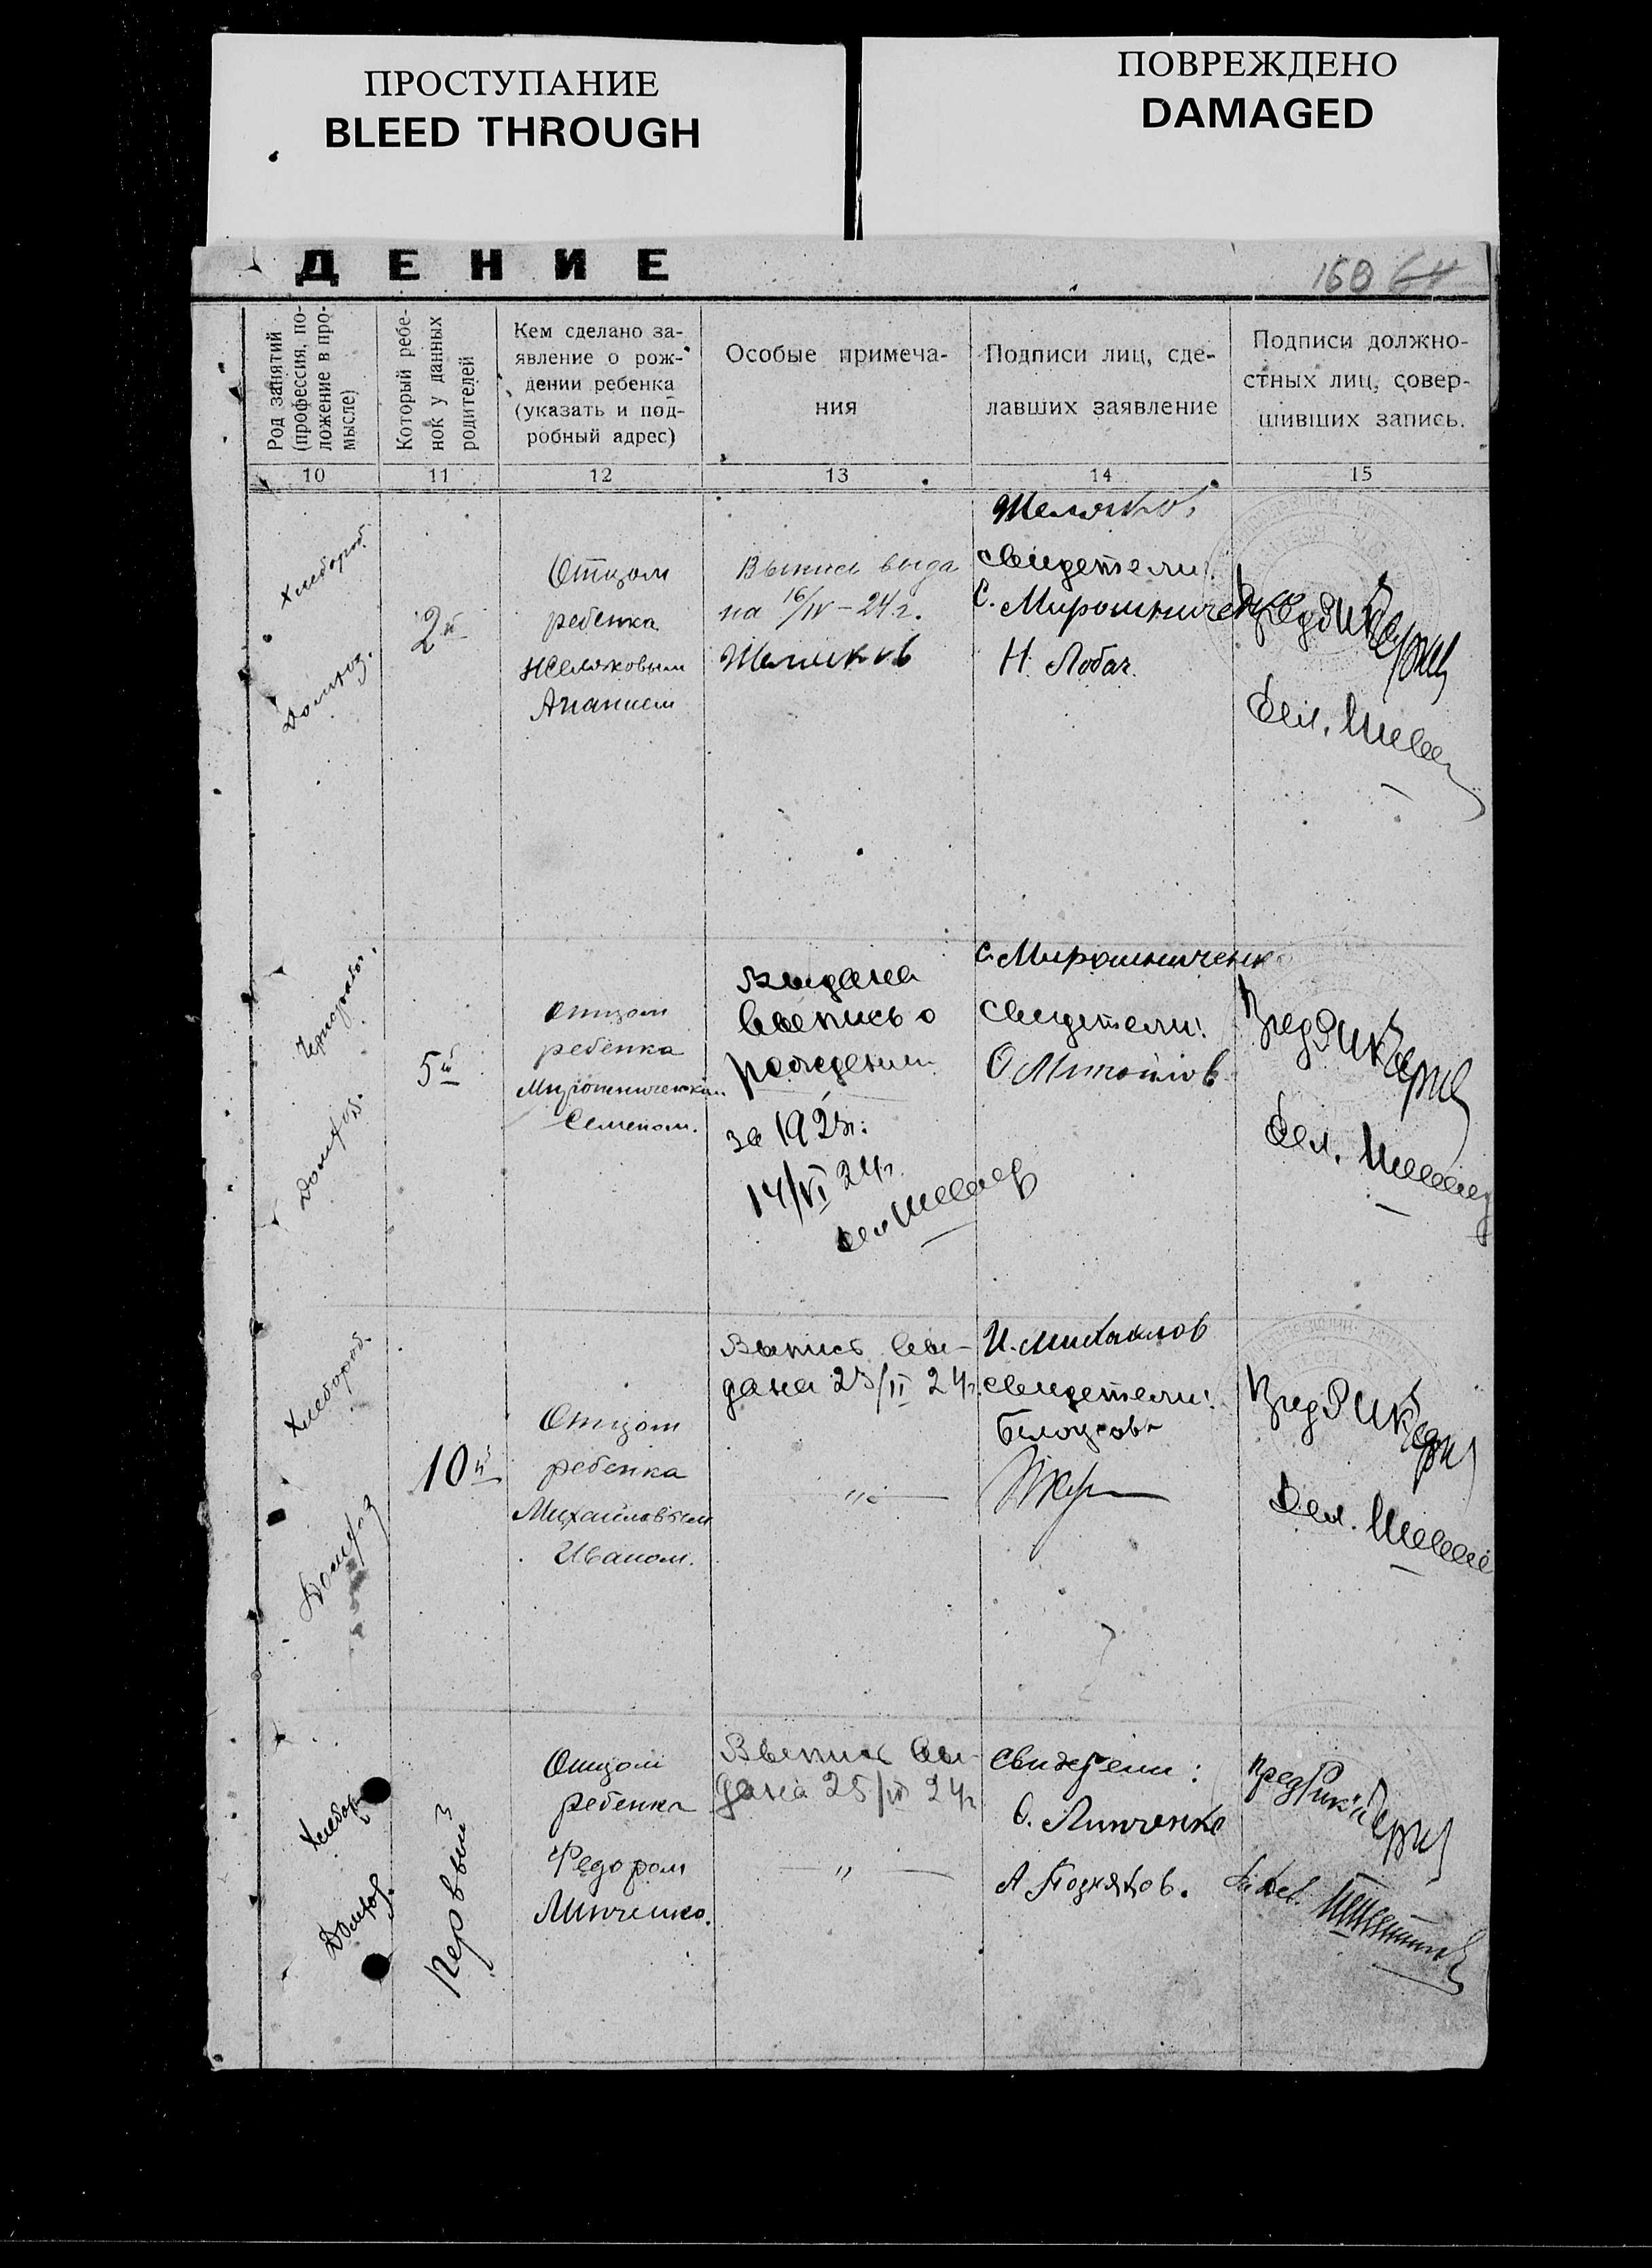 ПРОСТУПАНИЕ
BLEED THROUGH
ПОВРЕЖДЕНО
DAMAGED
ДЕНИЕ
168 64
Род занятий
(профессия, по-
ложение в про-
мысле)
Который ребе-
нок у данных
родителей
Кем сделано за-
явление о рож-
дении ребенка
(указать и под-
робный адрес)
Особые примеча-
ния
Подписи лиц, сде-
лавших заявление
Подписи должно-
стных лиц, совер-
шивших запись.
10 11 12 13 14 15
Хлебороб.
Домхоз.
2й
Отцом
ребенка
Желяковым
Ананием
Выпись выда
на 16/IV – 24 г.
Свидетели:
С. Мирошниченко
Н. Лобач.
Пред Рик
Дел.
Чернорабоч.
Домхоз.
5й
Отцом
ребенка
Мирошниченком
Семеном.
Выдана
выпись о
рождении
за 1923г:
14/VI 24г.
С. Мирошниченко
Свидетели:
Пред Рик
Дел.
Хлебороб.
Домхоз
10й
Отцом
ребенка
Михайловым
Иваном.
Выпись вы-
дана 23/II 24г.
— „ —
И. Михайлов
Свидетели:
Пред Рик
Дел.
Хлебор
Домхоз.
Первый
Отцом
ребенка
Федором
Линченко.
Выпись вы-
дана 25/ 24г
— „ —
Свидетели:
О. Линченко
А Позняков.
Пред Рик